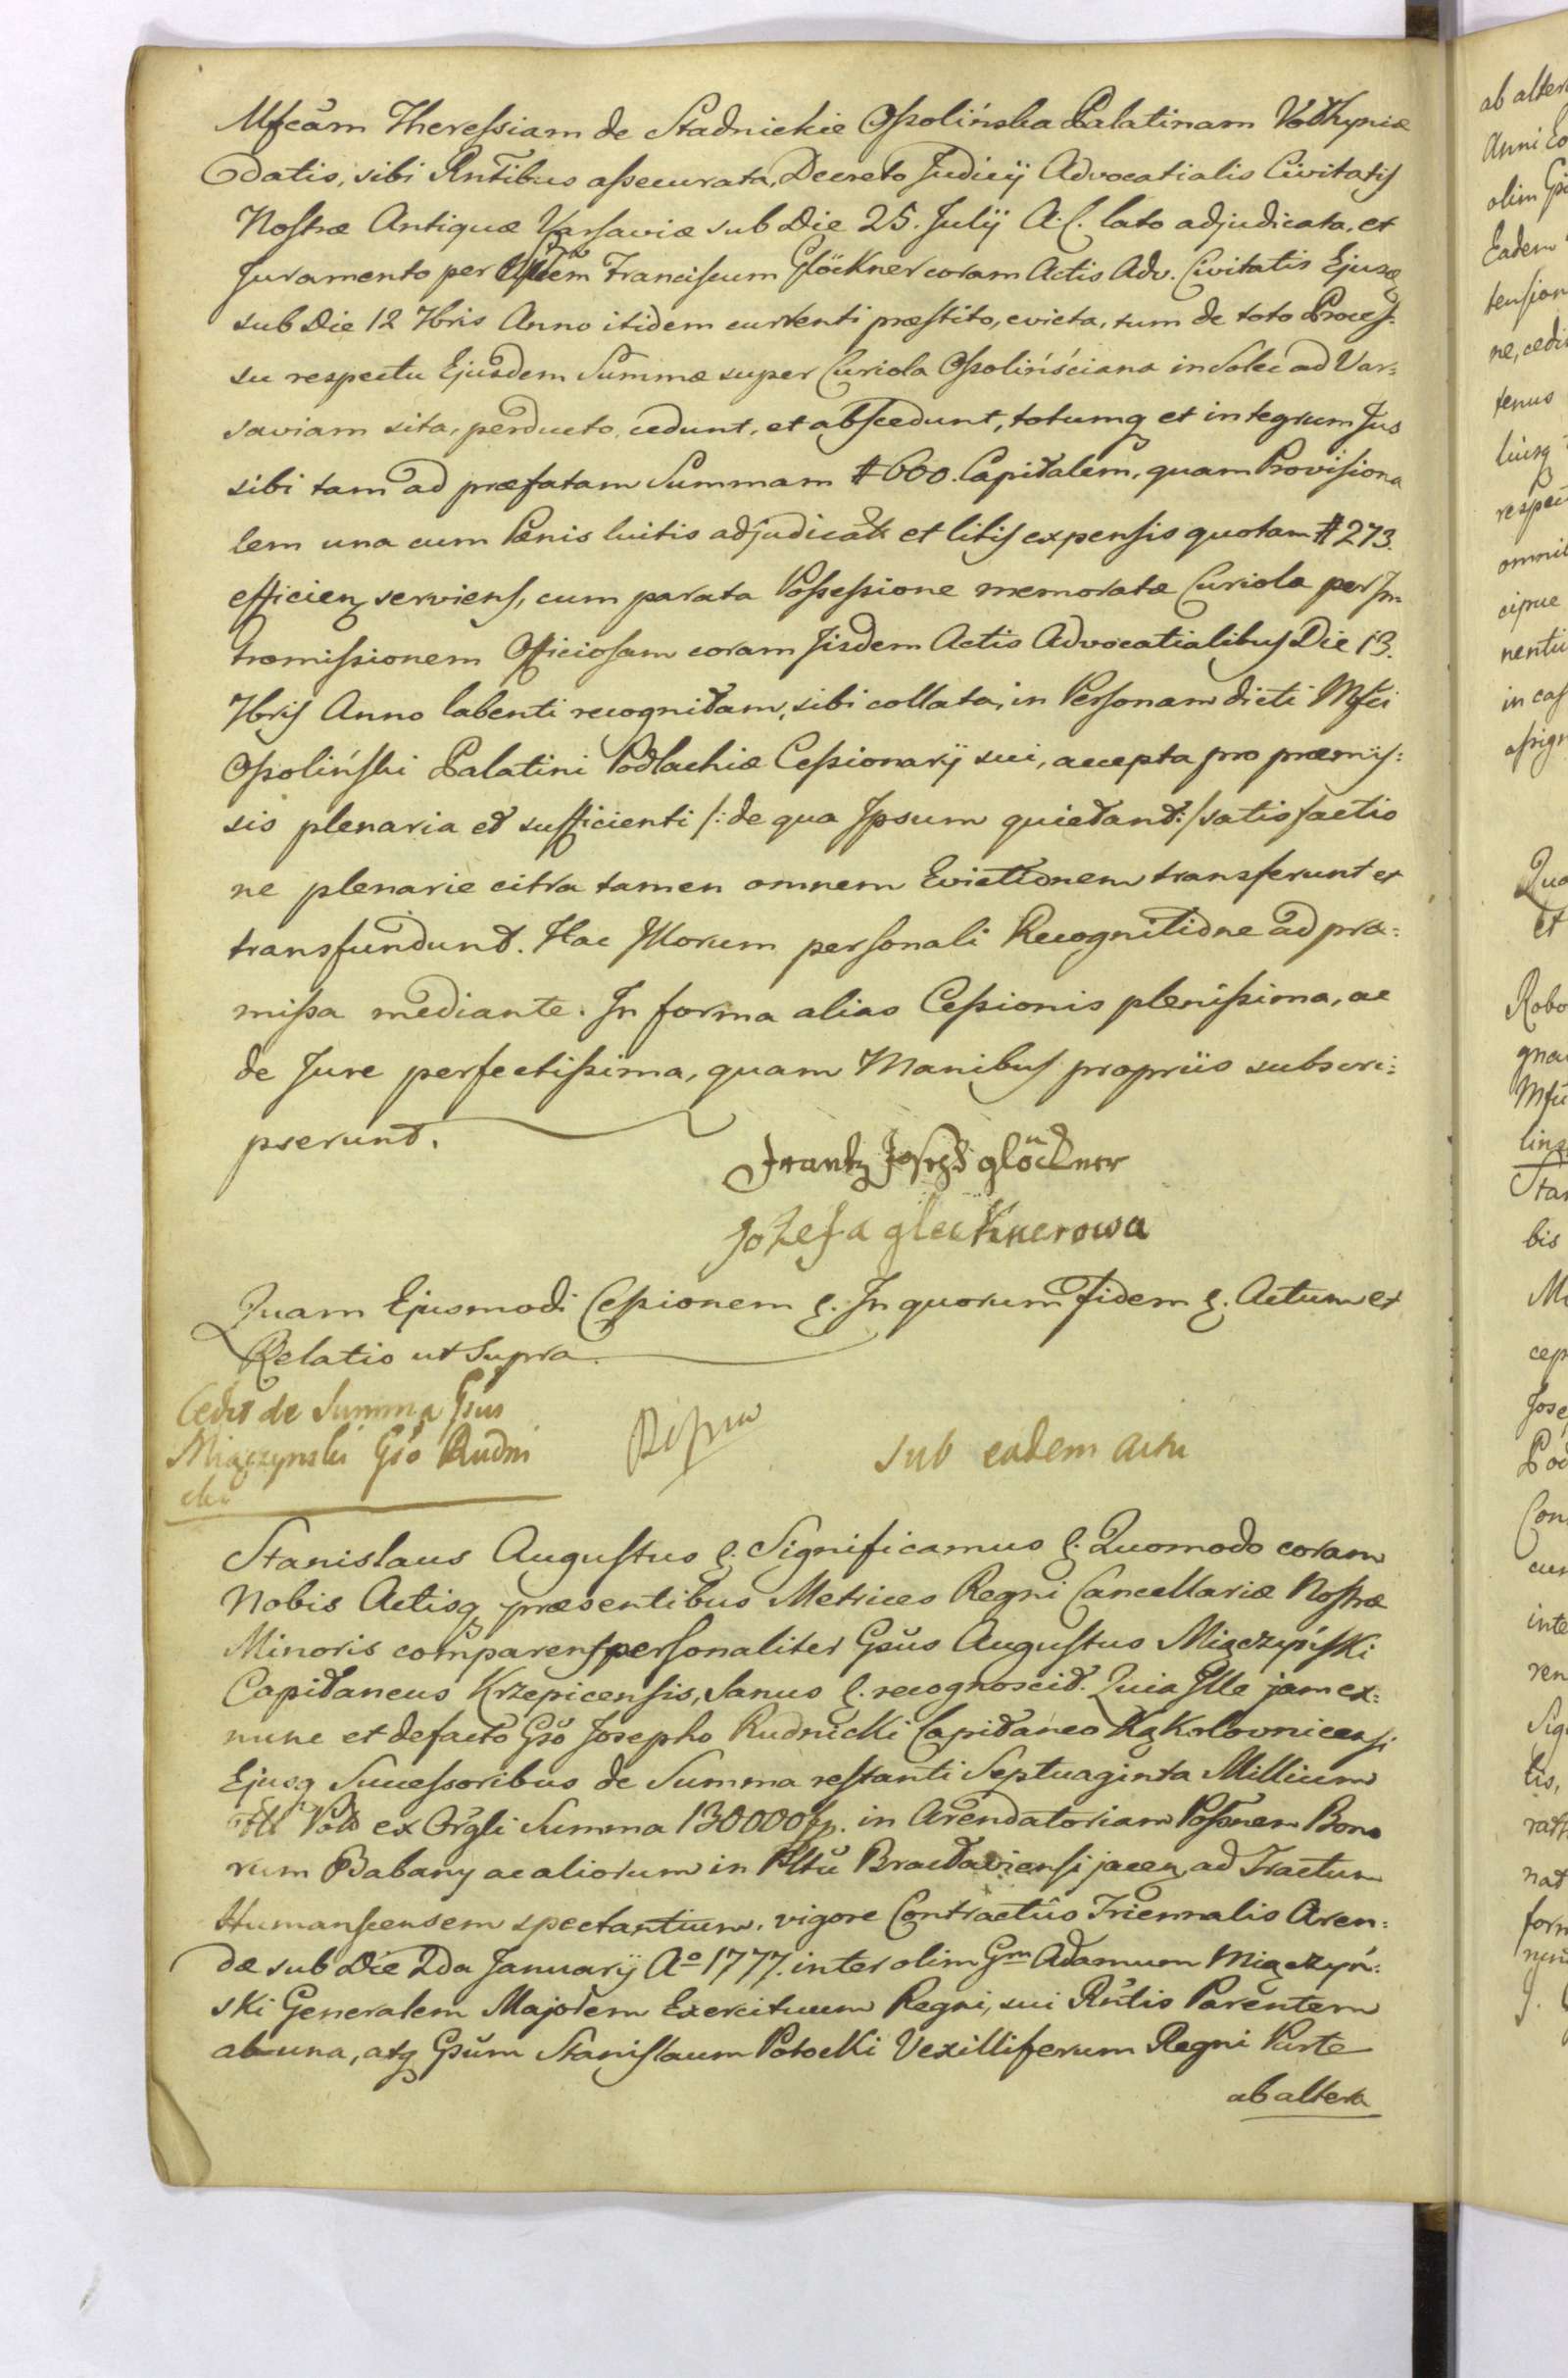 Mfcam Theressiam de Stadnickie Ossolińska Palatinam Volhyniæ
datis, sibi Rntibus assecurata, Decreto Judicij Advocatialis Civitatis
Nostræ Antiquæ Varsaviæ sub Die 25. Julij A. C. lato adjudicata, et
Juramento per Franciscum Glöckner coram Actis Adv. Civitatis Ejusq
sub Die 12 7bris Anno itidem currenti præstito, evicta, tum de toto Proces=
su respectu Ejusdem Summæ super Curiola Ossolińściana in Solec ad Var=
saviam sita, perducto, cedunt, et abscedunt, totumq et integrum Jus
sibi tam ad præfatam Summam # 600. Capitalem, quam Provisiona
lem una cum Pœnis luitis adjudicatis et litis expensis quotam # 273.
efficien serviens, cum parata Possessione memoratæ Curiolæ per In
tromissionem Officiosam coram Iisdem Actis Advocatialibus Die 13.
7bris Anno labenti recognitam, sibi collata, in Personam dicti Mfci
Ossoliński Palatini Podlachiæ Cessionarij sui, accepta pro præmis=
sis plenaria et sufficienti /: de qua Ipsum quietant :/ satisfactio
ne plenarie citra tamen omnem Evictionem transferunt et
transfundunt. Hac Illorum personali Recognitione ad præ=
missa mediante. In forma alias Cessionis plenissima, ac
de Jure perfectissima, quam Manibus propriis subscri=
pserunt.
Frantz Joseph glöckner
Jozefa glecknerowa
Quam Ejusmodi Cessionem &. In quorum Fidem &. Actum et
Relatio ut Supra.
Cedit de Summa Gsus
Miączynski Gso Rudni
cki
sub eadem actu
Stanislaus Augustus &. Significamus &. Quomodo coram
Nobis Actisq præsentibus Metrices Regni Cancellariæ Nostræ
Minoris comparens personaliter Gsus Augustus Miączyński
Capitaneus Krzepicensis, Sanus &. recognoscit. Quia Ille jam ex=
nunc et defacto Gso Josepho Rudnicki Capitaneo Kąkolovnicensi
Ejusq Successoribus de Summa restanti Septuaginta Millium
Pold ex Orgli Summa 130000 fp. in Arendatoriam Possnem Bono
rum Babany ac aliorum in Pltu Bracłaviensi jacen ad Tractum
Humanscensem spectantium, vigore Contractûs Triennalis Aren=
dæ sub Die 2da Januarij Ao 1777. inter olim Gm Adamum Miączyń=
ski Generalem Majorem Exercituum Regni, sui Rntis Parentem
ab una, atq Gsum Stanislaum Potocki Vexilliferum Regni Parte
ab altera